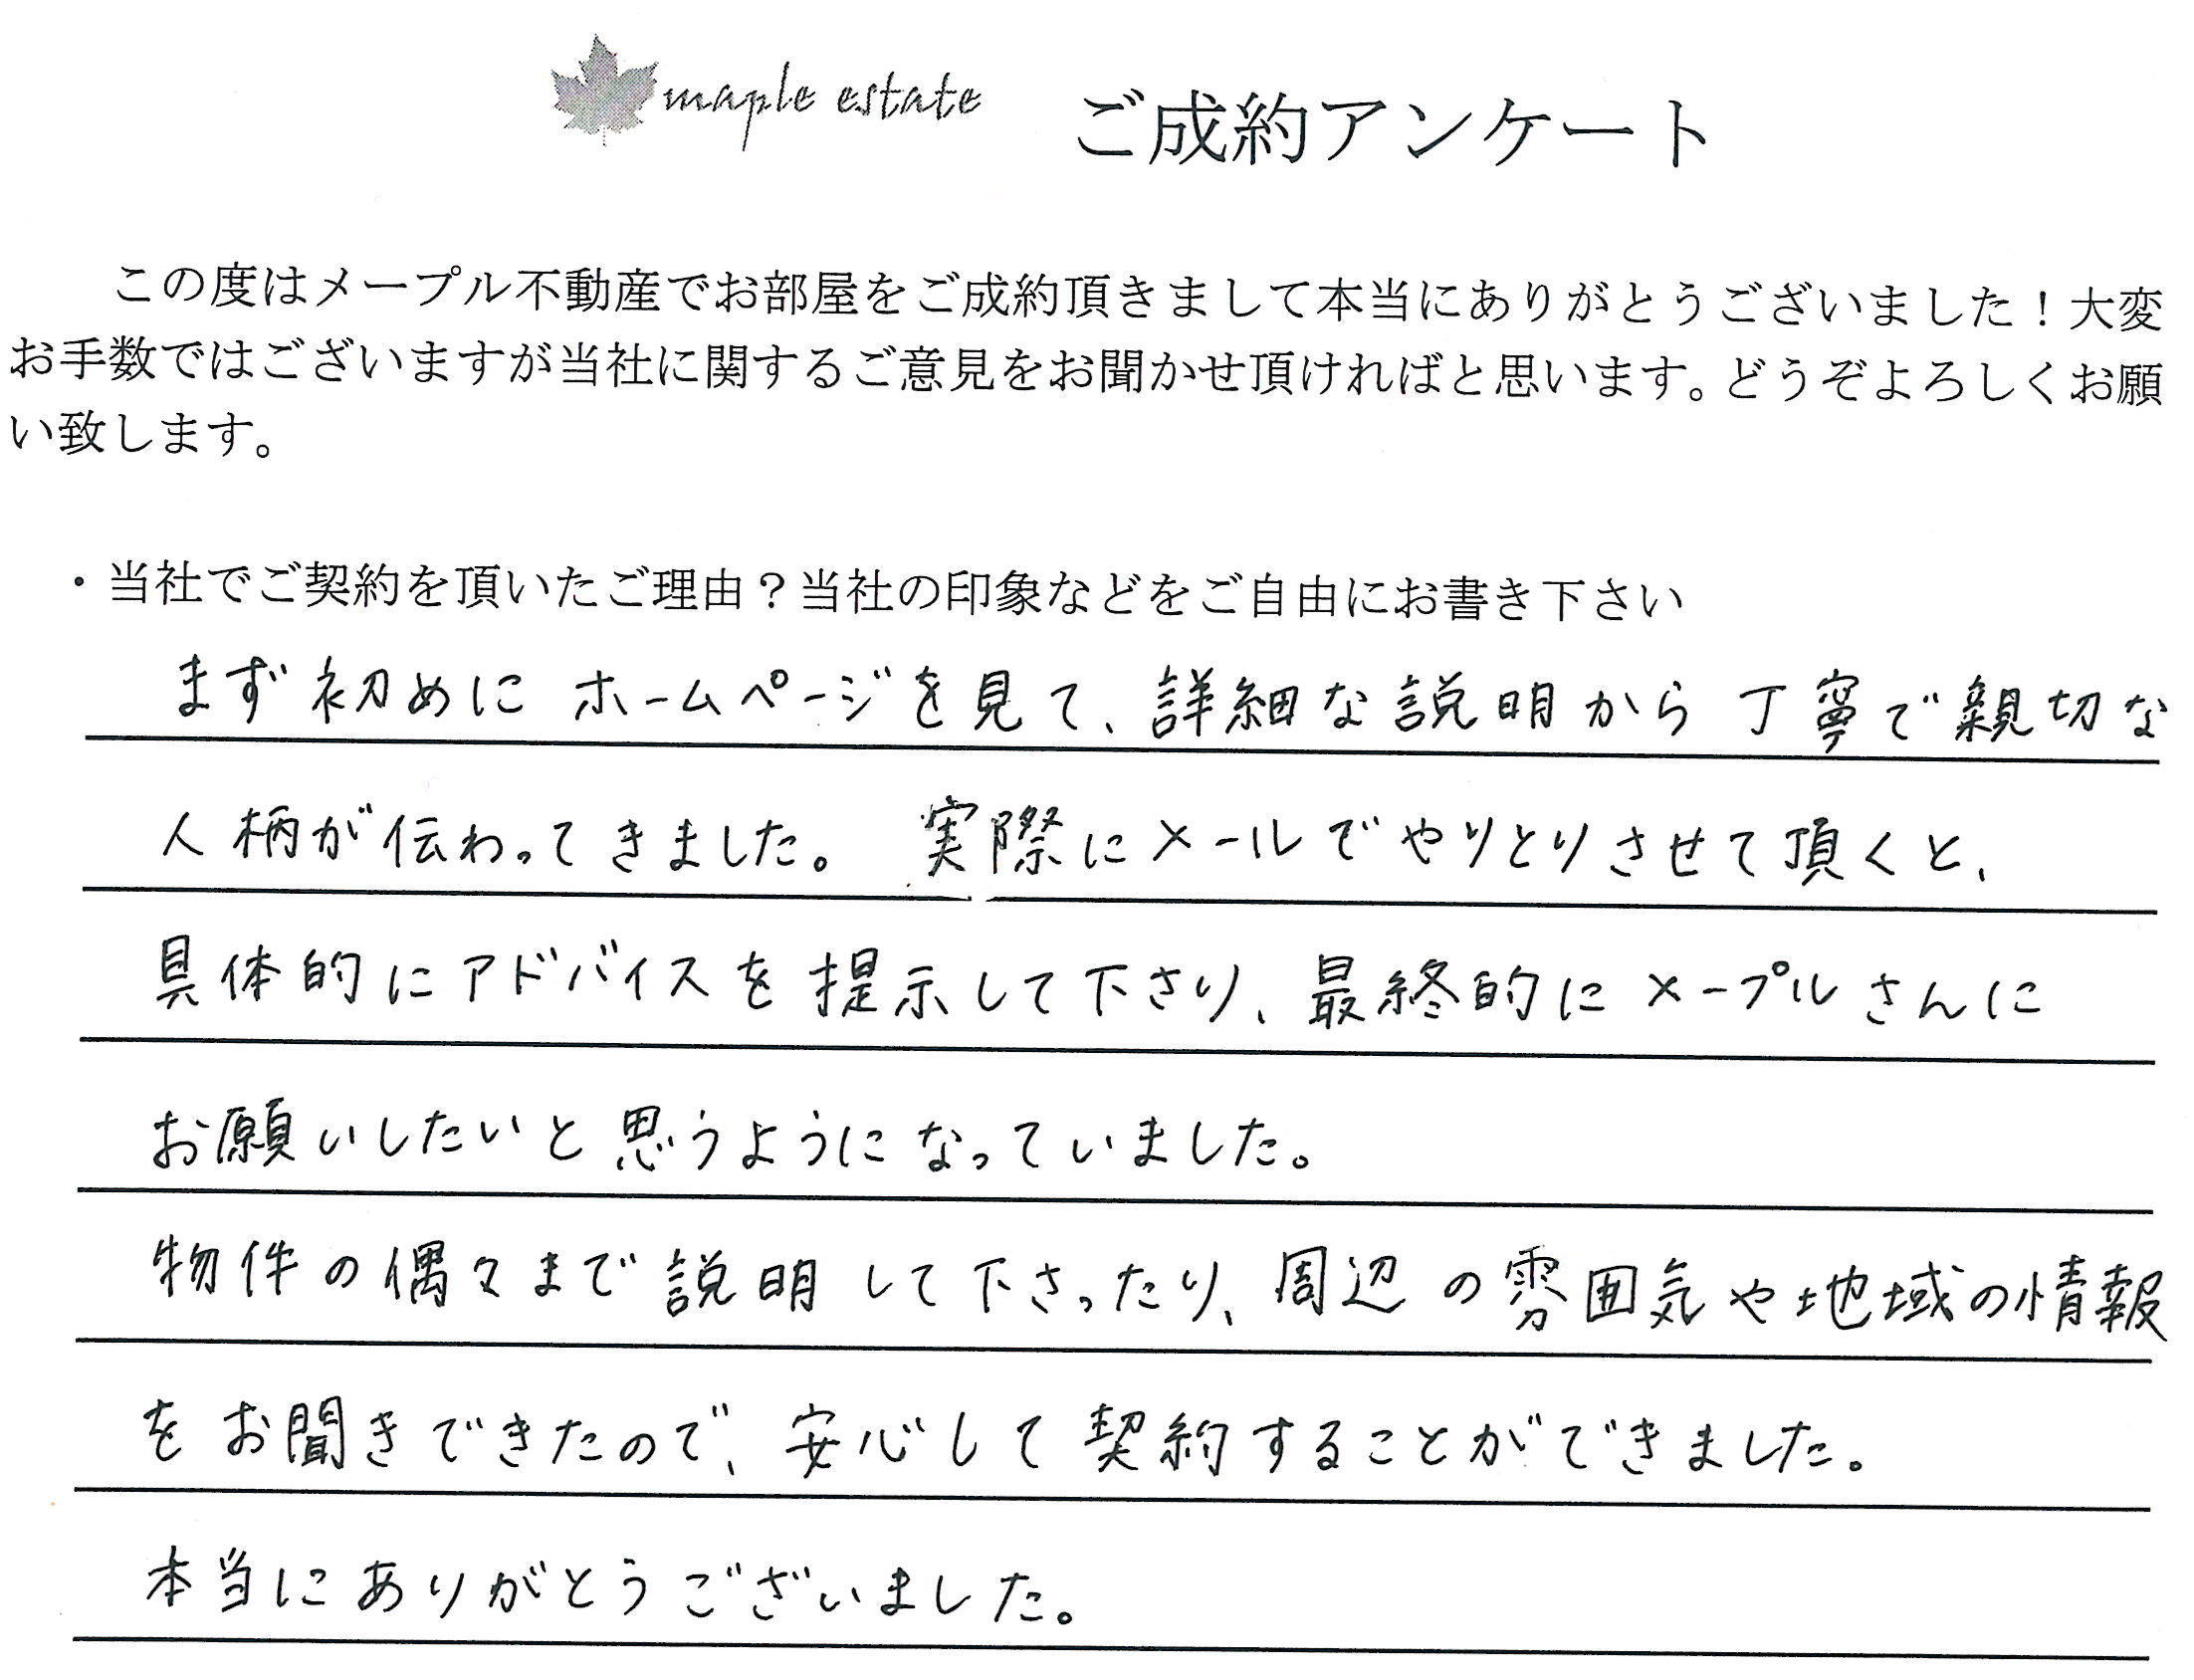 maple estate ご成約アンケート
この度はメープル不動産でお部屋をご成約頂きまして本当にありがとうございました！大変
お手数ではございますが当社に関するご意見をお聞かせ頂ければと思います。どうぞよろしくお願
い致します。
・当社でご契約を頂いたご理由？当社の印象などをご自由にお書き下さい
まず初めにホームページを見て、詳細な説明から丁寧で親切な
人柄が伝わってきました。実際にメールでやりとりさせて頂くと、
具体的にアドバイスを提示して下さり、最終的にメープルさんに
お願いしたいと思うようになっていました。
物件の偶々まで説明して下さったり、周辺の雰囲気や地域の情報
をお聞きできたので、安心して契約することができました。
本当にありがとうございました。